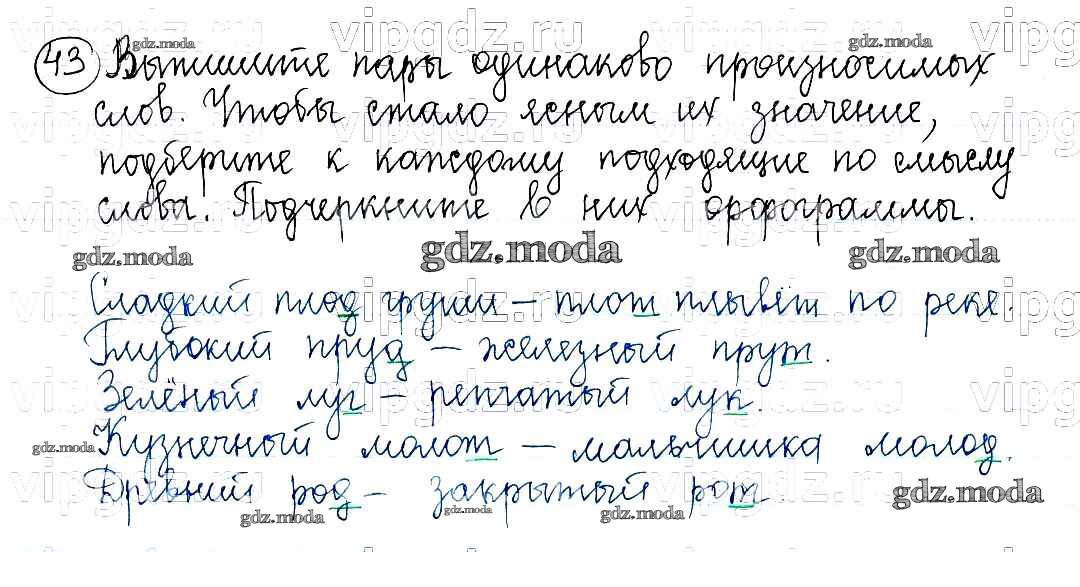 43 Выпишите пары одинаково произносимых
слов. Чтобы стало ясным их значение,
подберите к каждому подходящие по смыслу
слова. Подчеркните в них орфограммы.
Сладкий плод груши – плот плывёт по реке.
Глубокий пруд – железный прут.
Зелёный луг – репчатый лук.
Кузнечный молот – мальчишка молод.
Древний род – закрытый рот